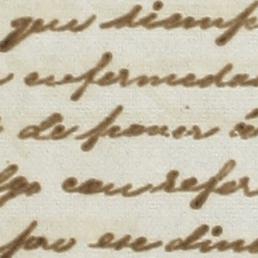 que siemp
enfermeda
de poner á
con refer
por ese din